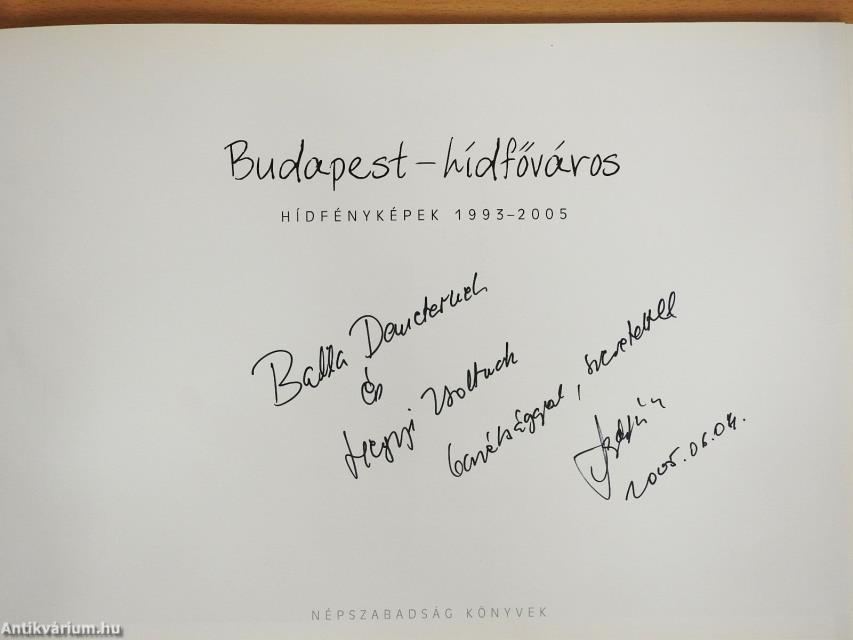 Budapest – hídfőváros
HÍDFÉNYKÉPEK 1993–2005
Balla
és
Hegyi Zsoltnak
barátsággal, szeretettel
2005.06.04.
NÉPSZABADSÁG KÖNYVEK
Antikvárium.hu